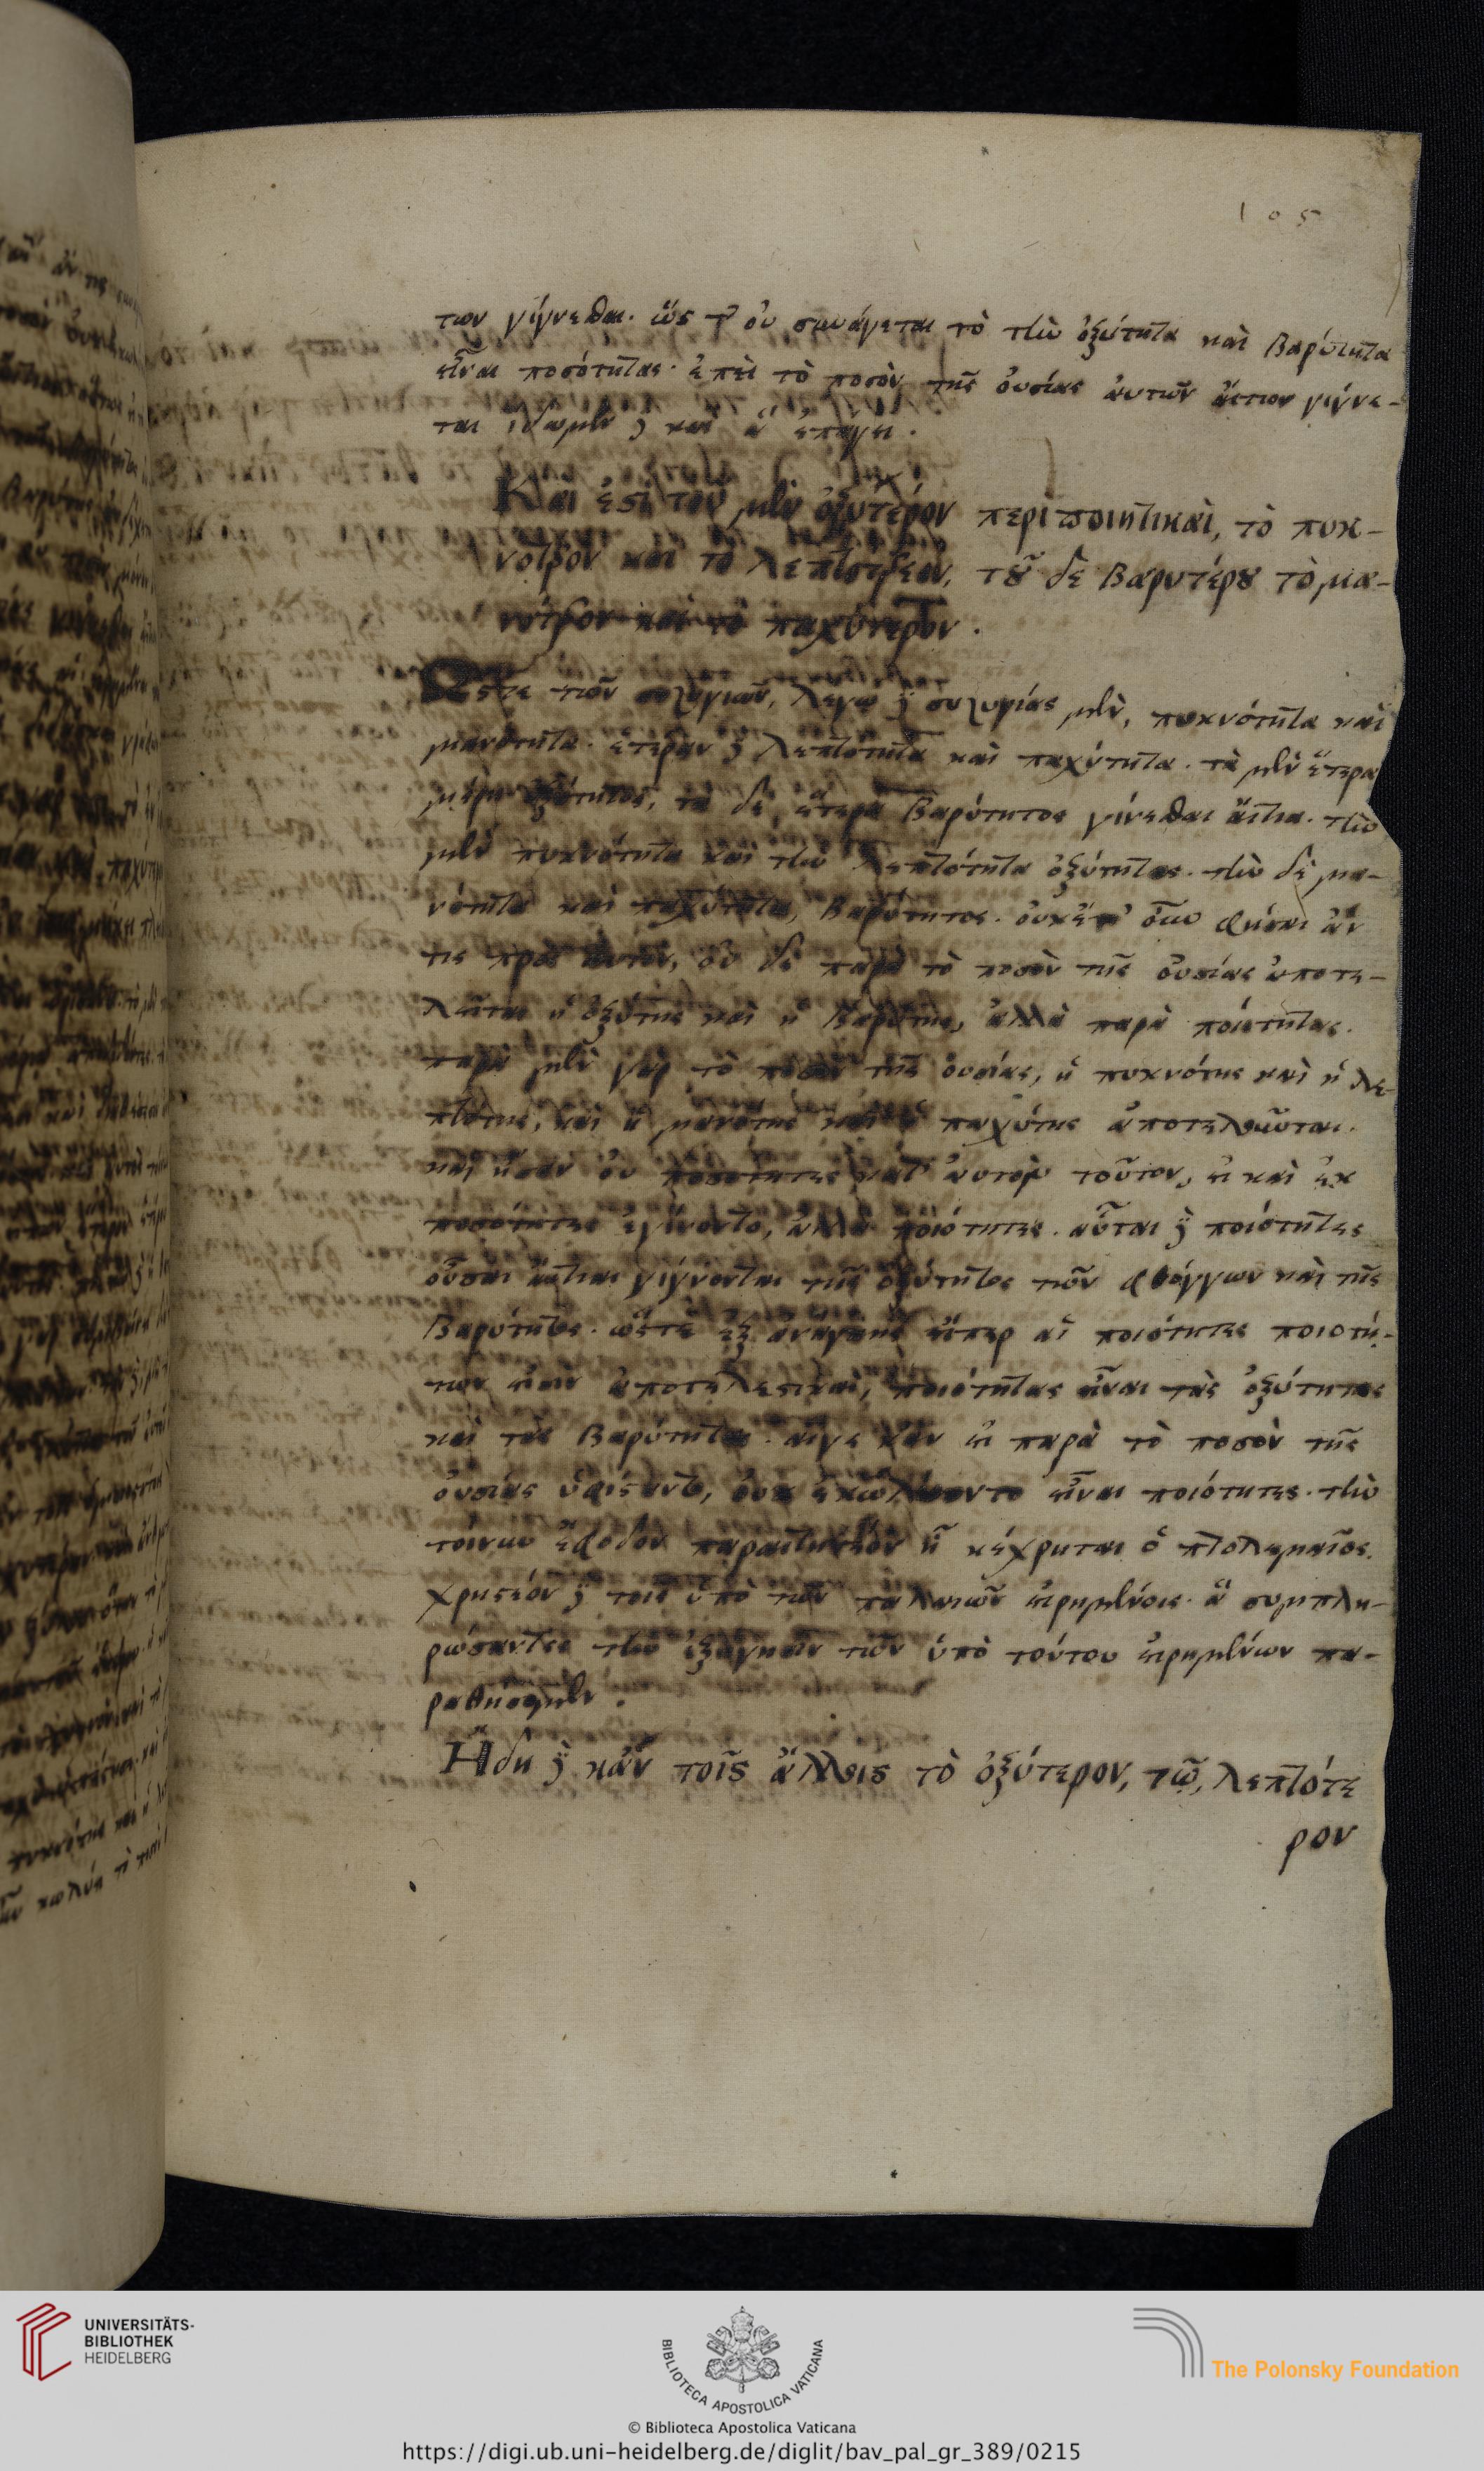 105
των γίγνεσθαι. ὥστε οὐ συνάγεται τὸ τὴν ὀξύτητα καὶ βαρύτητα
εἶναι ποσότητας. ἐπεὶ τὸ ποσὸν τῆς οὐσίας αὐτῶν αἴτιον γίγνε-
ται ἴδωμεν δὲ καὶ ἃ ἐπάγει.
Καὶ ἔστι τοῦ μὲν ὀξυτέρου περιποιητικαὶ, τὸ πυκ-
νότερον καὶ τὸ λεπτότερον, τοῦ δὲ βαρυτέρου τὸ μα-
νότερον καὶ τὸ παχύτερον.
Ὥστε τῶν συζυγιῶν, λέγω δὲ συζυγίας μὲν, πυκνότητα καὶ
μανότητα. ἑτέραν δὲ λεπτότητα καὶ παχύτητα. τὰ μὲν ἕτερα
μέρη ὀξύτητος, τὰ δὲ ἕτερα βαρύτητος γίνεσθαι αἴτια. τὴν
μὲν πυκνότητα καὶ τὴν λεπτότητα ὀξύτητος. τὴν δὲ μα-
νότητα καὶ παχύτητα, βαρύτητος. φήσει ἄν
τις πρὸς αὐτὸν, οὐδὲ παρὰ τὸ ποσὸν τῆς οὐσίας ἀποτε-
λεῖται ἡ ὀξύτης καὶ ἡ βαρύτης, ἀλλὰ παρὰ ποιότητας.
παρὰ μὲν γὰρ τὸ ποσὸν τῆς οὐσίας, ἡ πυκνότης καὶ ἡ λε-
πτότης, καὶ ἡ μανότης καὶ ἡ παχύτης ἀποτελοῦνται.
καὶ ἦσαν οὐ ποσότητες κατ' αὐτὸν τοῦτον, εἰ καὶ ἐκ
ποσότητος ἐγίνοντο, ἀλλὰ ποιότητες. αὗται δὲ ποιότητες
οὖσαι αἴτιαι γίγνονται τῆς ὀξύτητος τῶν φθόγγων καὶ τῆς
βαρύτητος. ὥστε ἐξ ἀνάγκης εἴπερ αἱ ποιότητες ποιοτή-
των εἰσὶν ἀποτελεστικαὶ, ποιότητας εἶναι τὰς ὀξύτητας
καὶ τὰς βαρύτητας. αἵγε κἂν εἰ παρὰ τὸ ποσὸν τῆς
οὐσίας ὑφίσταντο, οὐκ ἐκωλύοντο εἶναι ποιότητες. τὴν
τοίνυν ἔφοδον παραιτητέον ᾗ κέχρηται ὁ πτολεμαῖος.
χρηστέον δὲ τοῖς ὑπὸ τῶν παλαιῶν εἰρημένοις. ἃ συμπλη-
ρώσαντες τὴν ἐξήγησιν τῶν ὑπὸ τούτου εἰρημένων πα-
ραθήσομεν.
Ἤδη δὲ κἀν τοῖς ἄλλοις τὸ ὀξύτερον, τῷ, λεπτότε
ρον
UNIVERSITÄTS-
BIBLIOTHEK
HEIDELBERG
BIBLIOTECA APOSTOLICA VATICANA
The Polonsky Foundation
© Biblioteca Apostolica Vaticana
https://digi.ub.uni-heidelberg.de/diglit/bav_pal_gr_389/0215